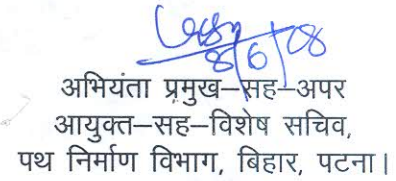 8/6/08
अभियंता प्रमुख–सह–अपर
आयुक्त–सह–विशेष सचिव,
पथ निर्माण विभाग, बिहार, पटना।